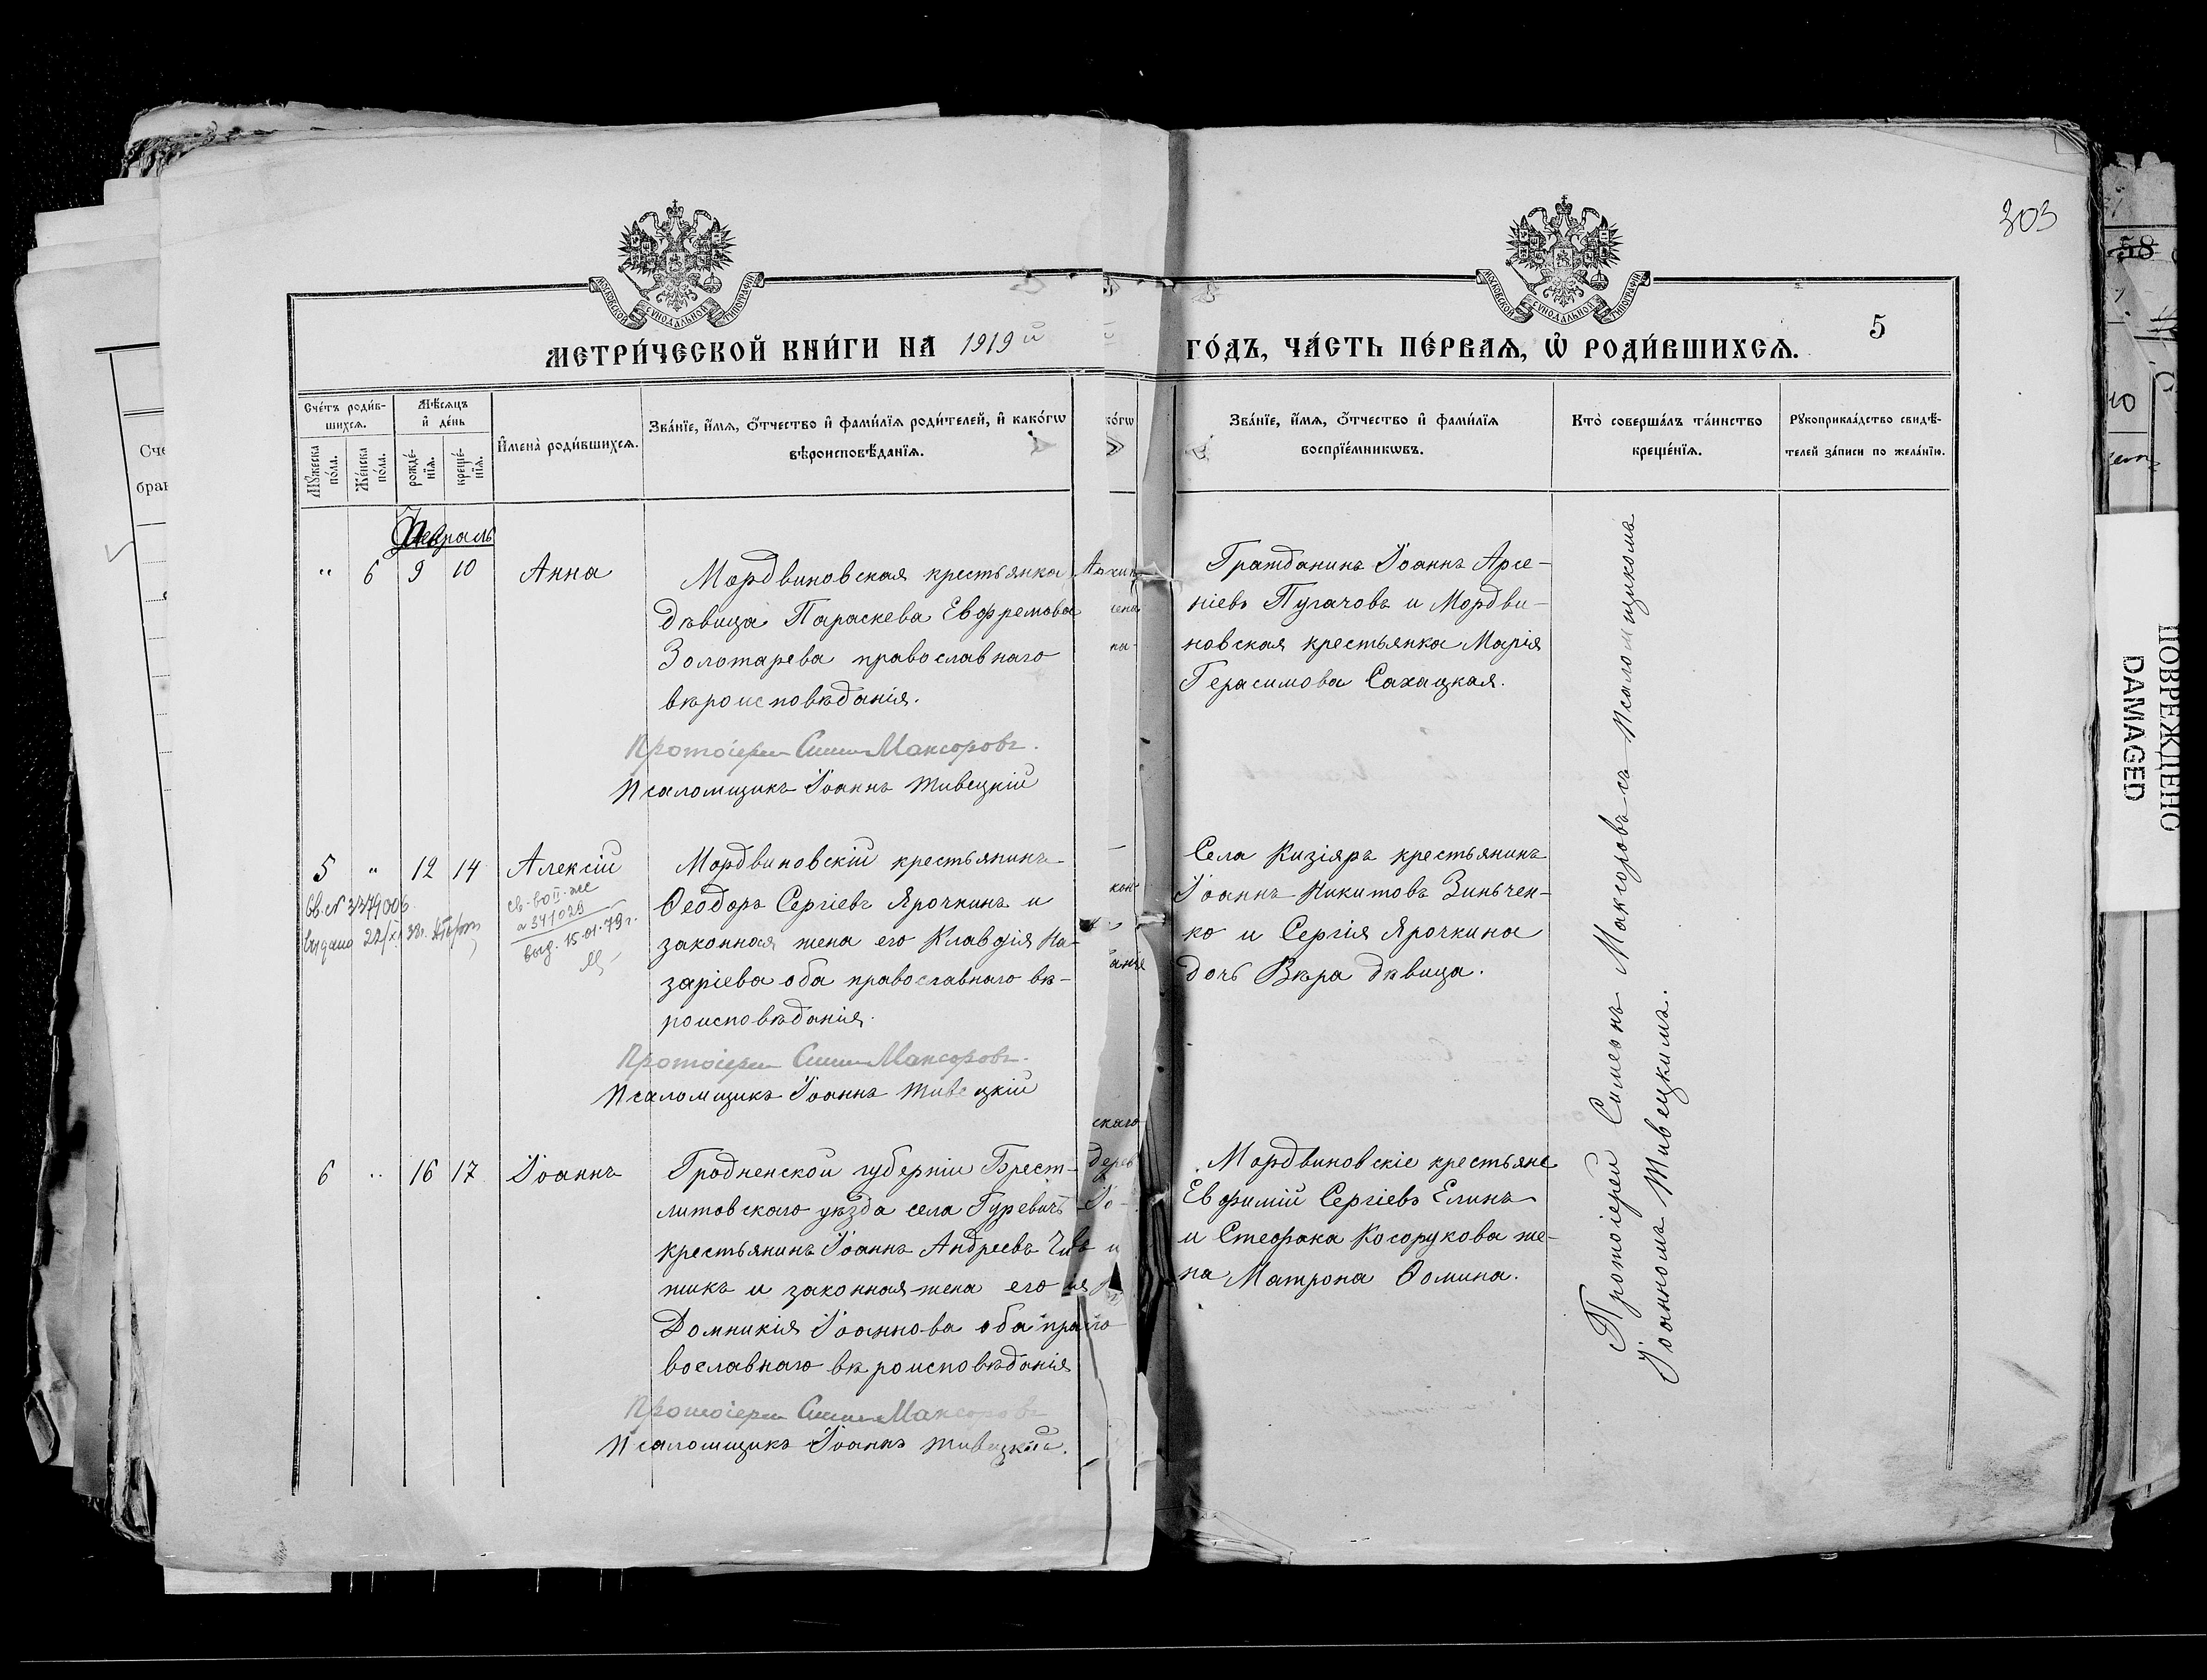 303
58
МОСКОВСКОЙ СѴНОДАЛЬНОЙ ТИПОГРАФІИ
МОСКОВСКОЙ СѴНОДАЛЬНОЙ ТИПОГРАФІИ
МЕТРИ́ЧЕСКОЙ КНИ́ГИ НА 1919й
ГО́ДЪ, ЧА́СТЬ ПЕ́РВАѦ, Ѡ҆ РОДИ́ВШИХСѦ.
5
Сче́тъ роди́в-
шихсѧ.
Мꙋ́жеска по́ла.
Же́нска по́ла.
Мѣ́сѧцъ
и҆ де́нь
рожде́-
нїѧ.
креще́-
нїѧ.
И҆мена̀ роди́вшихсѧ.
Зва́нїе, и҆́мѧ, ѻ҆́тчество и҆ фами́лїѧ роди́телей, и҆ како́гѡ
вѣроисповѣ́данїѧ.
Зва́нїе, и҆́мѧ, ѻ҆́тчество и҆ фами́лїѧ
воспрїе́мникѡвъ.
Кто̀ соверша́лъ та́инство
креще́нїѧ.
Рꙋкоприкла́дство свидѣ́-
телей за́писи по жела́нїю.
Февраль
" 6 9 10 Анна
Мордвиновская крестьянка
дѣвица Параскева Евфремова
Золотарева православнаго
вѣроисповѣданія.
Протоіерей Симеонъ Максоровъ.
Псаломщикъ Іоаннъ Тивецкій
Гражданинъ Іоаннъ Арсе-
ніевъ Пугачовъ и Мордви-
новская крестьянка Марія
Герасимова Сахацкая.
5 " 12 14 Алексій
Св. № 3379006
выдано 22/XI
св-во II-ое
№ 341029
выд. 15.01.79г.
Мордвиновскій крестьянинъ
Ѳеодоръ Сергіевъ Ярочкинъ и
законная жена его Клавдія На-
заріева оба православнаго вѣ-
роисповѣданія.
Протоіерей Симеонъ Максоровъ.
Псаломщикъ Іоаннъ Тивецкій
Села Кизіяръ крестьянинъ
Іоаннъ Никитовъ Зиньчен-
ко и Сергія Ярочкина
дочь Вѣра дѣвица.
6 " 16 17 Іоаннъ
Гродненской губерніи Брест-
литовскаго уѣзда села Гуревичъ
крестьянинъ Іоаннъ Андреевъ
никъ и законная жена его
Домникія Іоаннова оба пра
вославнаго вѣроисповѣданія
Протоіерей Симеонъ Максоровъ
Псаломщикъ Іоаннъ Тивецкій.
Мордвиновскіе крестьяне
Евфимій Сергіевъ Елинъ
и Стефана Косорукова же-
на Матрона Ѳомина.
Протоіерей Симеонъ Максоровъ съ псаломщикомъ
Іоанномъ Тивецкимъ.
ПОВРЕЖДЕНО
DAMAGED